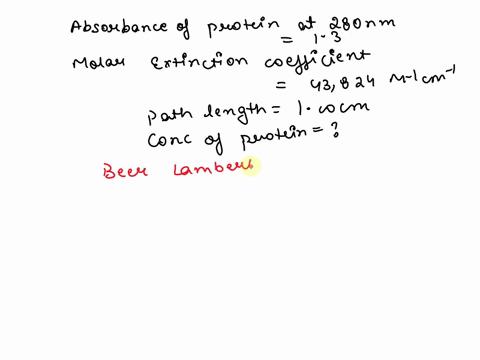 Absorbance of protein at 280nm
= 1.3
Molar Extinction coefficient
= 43,824 M-1 cm-1
path length = 1.00cm
Conc of protein = ?
Beer Lambert